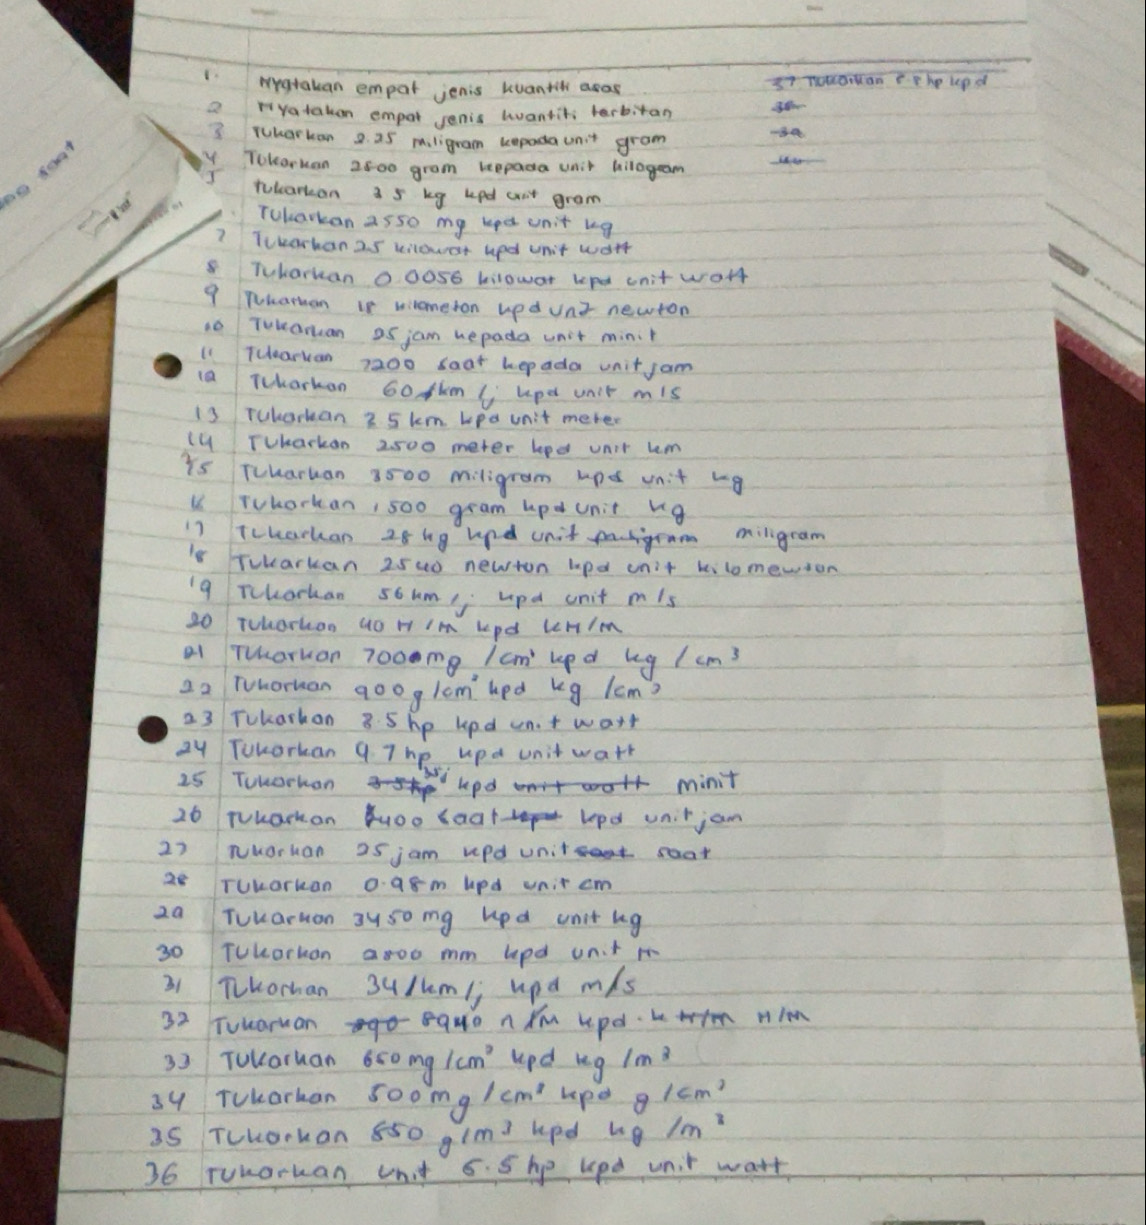 1. Nyatakan empat jenis kuantiti asas
37 Tukarkan hp kpd
2 Nyatakan empat jenis kuantiti terbitan
38
3 Tukarkan 2.25 miligram kepada unit gram
39
4 Tukarkan 2500 gram kepada unit kilogram
5 tukarkan 35 kg kpd unit gram
Tukarkan 2550 mg kpd unit kg
7 Tukarkan 25 kilowat kpd unit watt
8 Tukarkan 0.0056 kilowat kpd unit watt
9 Tukarkan 18 kpd newton
10 Tukarkan 25 jam kepada unit minit
11 Tukarkan 7200 saat kepada unit jam
12 Tukarkan 60 km/j kpd unit m/s
13 Tukarkan 35 km kpd unit meter
14 Tukarkan 2500 meter kpd unit km
15 Tukarkan 3500 miligram kpd unit kg
16 Tukarkan 1500 gram kpd unit kg
17 Tukarkan 28 kg kpd unit miligram
18 Tukarkan 2540 newton kpd unit kilomewton
19 Tukarkan 56 km/j kpd unit m/s
20 Tukarkan 40 N/m kpd kN/m
21 Tukarkan 7000mg/cm³ kpd kg/cm³
22 Tukarkan 900g/cm³ kpd kg/cm³
23 Tukarkan 8.5 hp kpd unit watt
24 Tukarkan 9.7 hp kpd unit watt
25 Tukarkan 35j kpd unit watt minit
26 Tukarkan 5400 saat kpd unit jam
27 Tukarkan 25 jam kpd unit saat saat
28 Tukarkan 0.98m kpd unit cm
29 Tukarkan 3450mg kpd unit kg
30 Tukarkan 2800 mm kpd unit m
31 Tukarkan 34/km/j kpd m/s
32 Tukarkan 890 8940 n/m kpd kN/m N/m
33 Tukarkan 650mg/cm³ kpd kg/m³
34 Tukarkan 500mg/cm³ kpd g/cm³
35 Tukarkan 850 g/m³ kpd kg/m³
36 Tukarkan unit 6.5 hp kpd unit watt